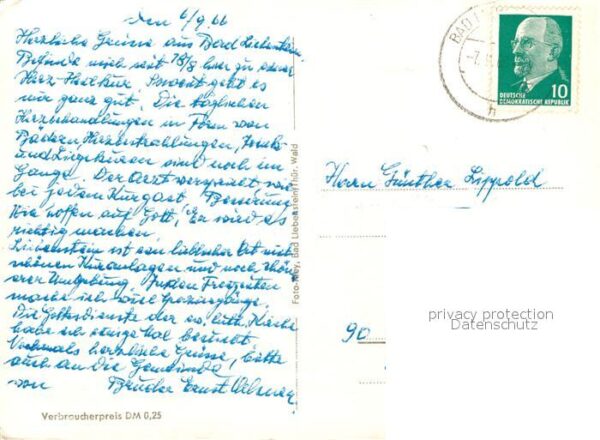 den 6/9.66
Herzliche Grüsse aus Bad Liebenstein
Befinde mich seit 18/8 hier zu einer
Herz-Heilkur. Soweit geht es
mir ganz gut. Die täglichen
Herzbehandlungen in Form von
Bädern, Herzbestrahlungen,
und Liegekuren sind noch im
Gange. Der Arzt verspricht,
bei jedem Kurgast Besserung
Wir hoffen auf Gott, Er wird es
richtig machen
Liebenstein ist ein lieblicher Ort mit
schönen Kuranlagen und noch schön
erer Umgebung. In den Freizeiten
mache ich viel Spaziergänge.
Die Gottesdienste der ev. luth. Kirche
habe ich einige Mal besucht
Nochmals herzliche Grüsse, bitte
auch an die Gemeinde,
von Bruder Ernst
Verbraucherpreis DM 0,25
Foto-Mey, Bad Liebenstein/Thür. Wald
BAD
10
DEUTSCHE
DEMOKRATISCHE REPUBLIK
h
Herrn Günther Lippold
privacy protection
Datenschutz
90